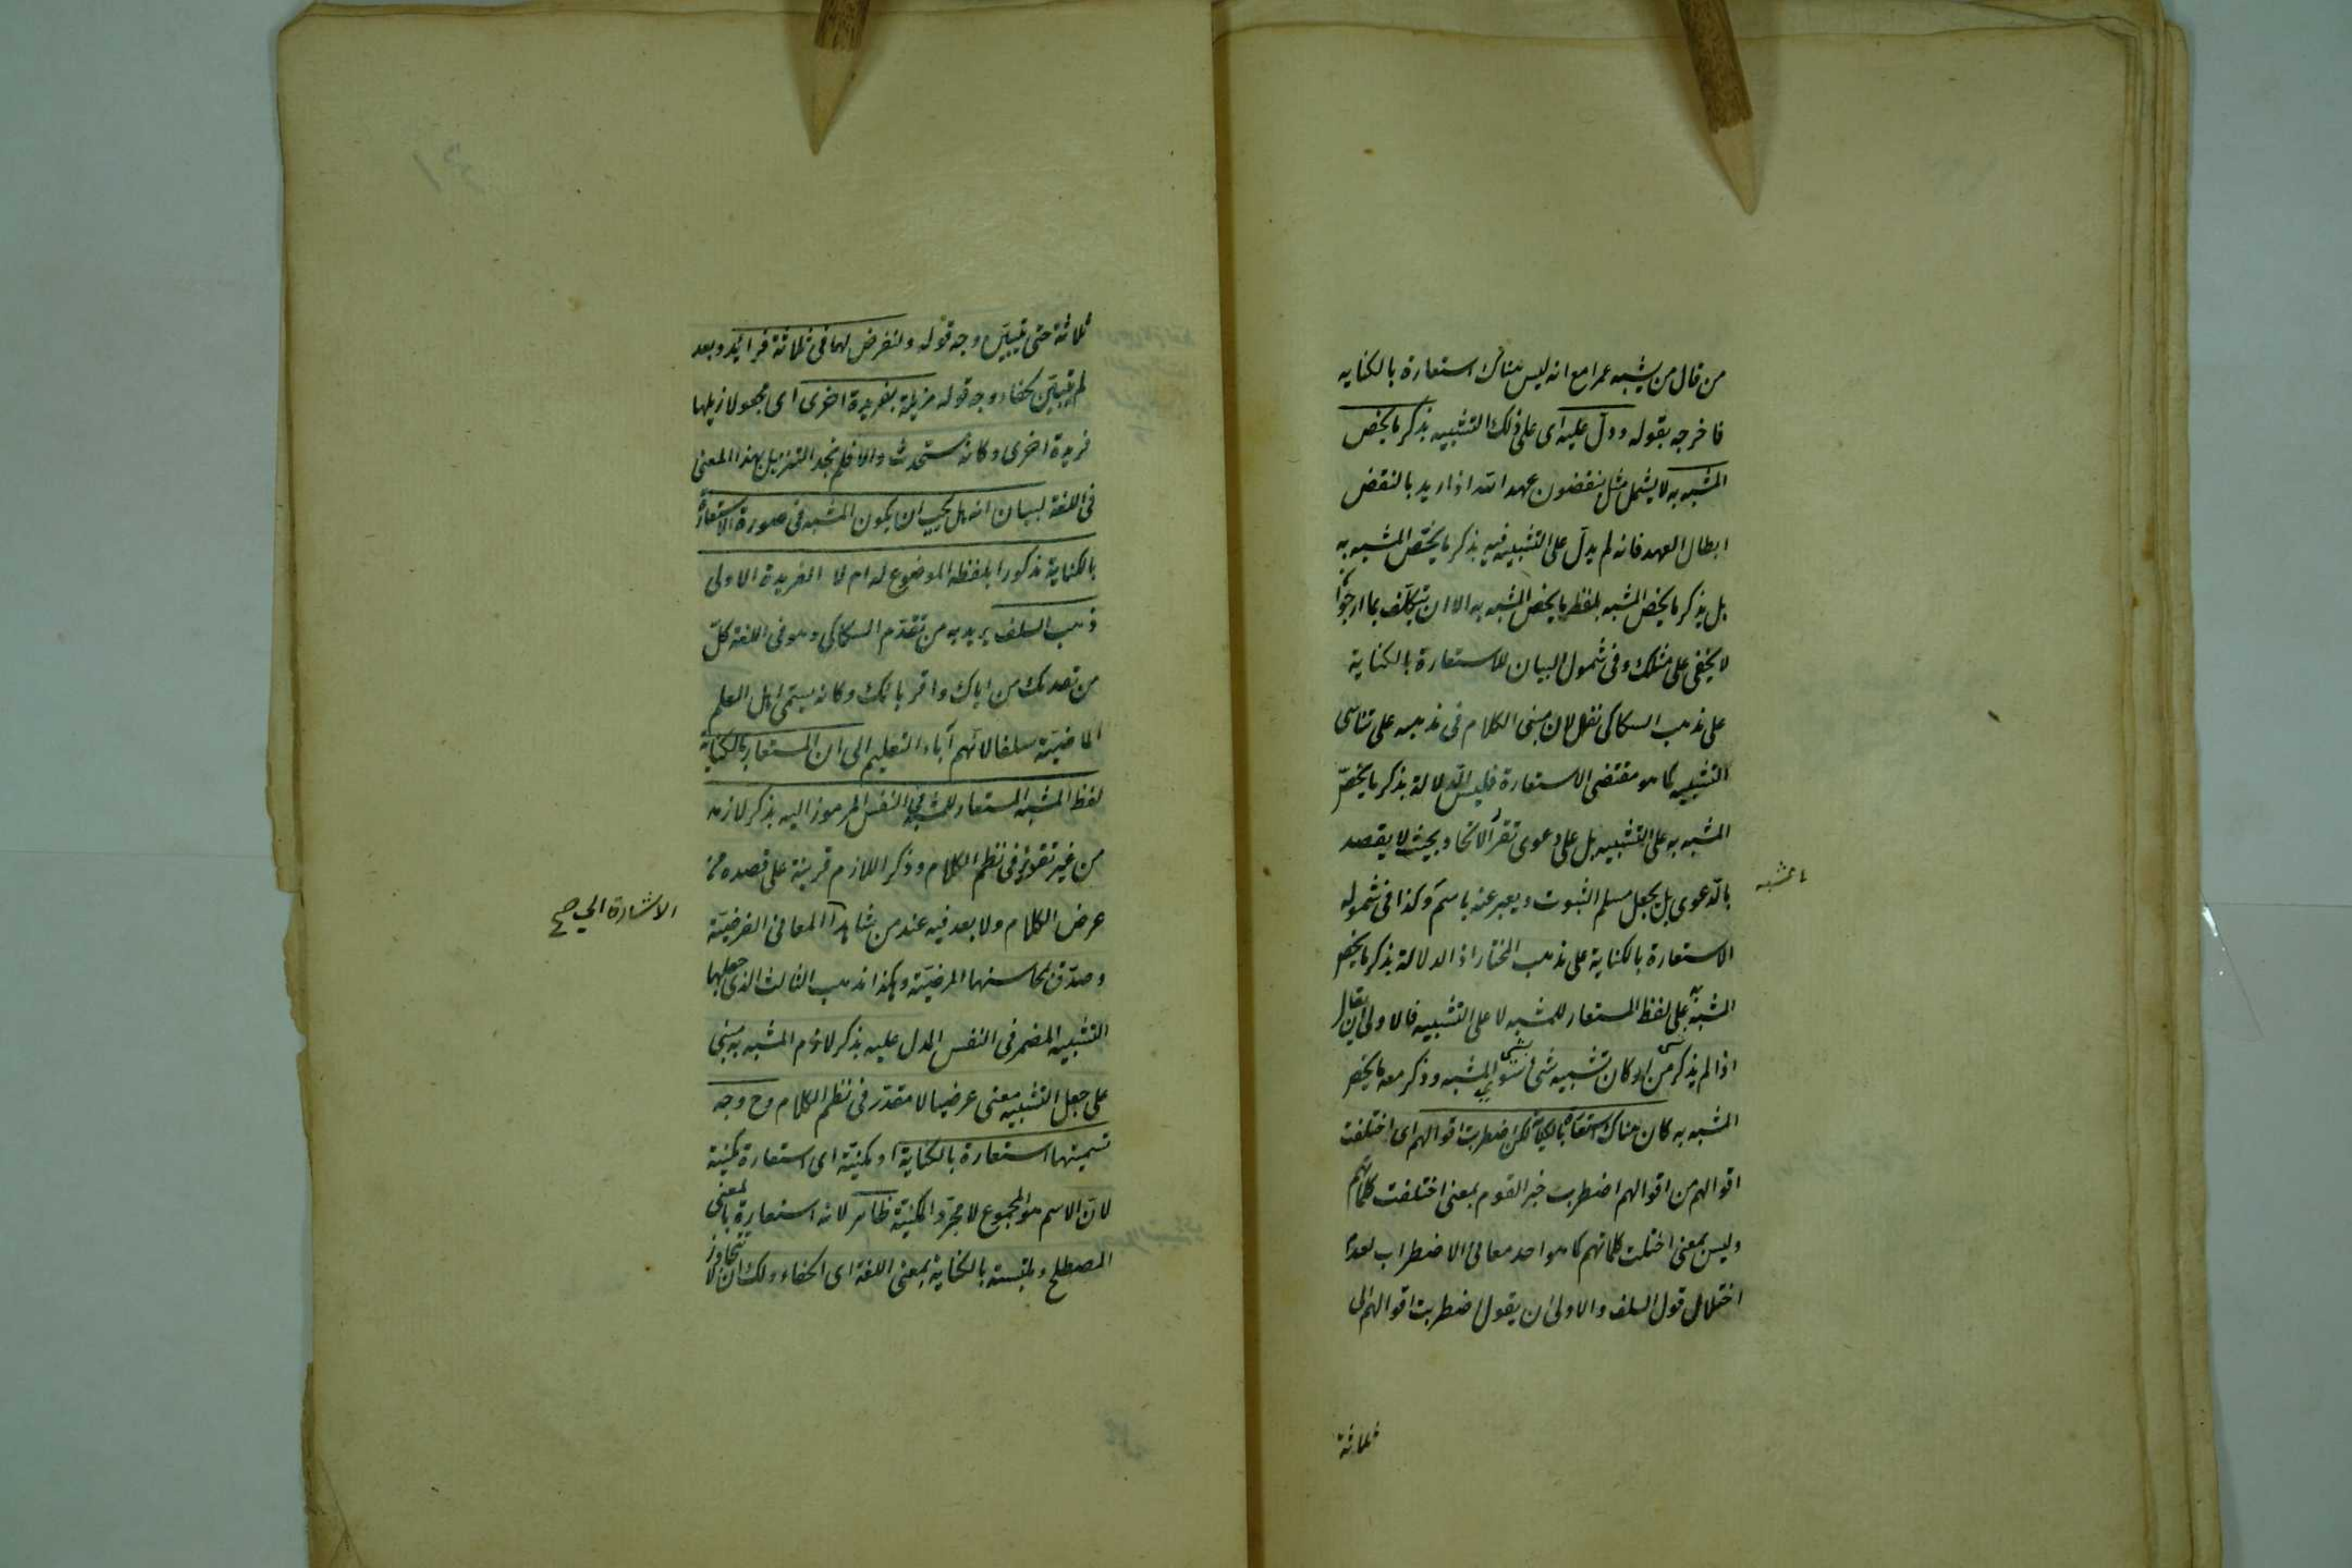 من قال من يشبه عمرا مع انه ليس هناك استعارة بالكنايه
فاخرجه بقوله ودل عليه اى على ذلك التشبيه بذكر ما يخص
المشبه به لا يشمل مثل ينقضون عهد الله اذا اريد بالنقض
ابطال العهد فانه لم يدل على التشبيه فيه بذكر ما يختص المشبه به
بل بذكر ما يخص المشبه بلفظ ما يخص المشبه به الا ان تتكلف بما ارجوا
لا يخفى على مثلك وفى شمول البيان للاستعارة بالكناية
على مذهب السكاكى نظر لان مبنى الكلام فى مذهبه على تناسى
التشبيه كما هو مقتضى الاستعارة فليس الدلالة بذكر ما يخص
المشبه به على التشبيه بل على دعوى تقرر الاتحاد بحيث لا يقصد
بالدعوى بل يجعل مسلم الثبوت ويعبر عنه باسم وكذا فى شموله
المشبه
الاستعارة بالكناية على مذهب المختار اذ الدلالة بذكر ما يخص
المشبه به على لفظ المستعار للمشبه لا على التشبيه فالاولى ان يقال
اذا لم يذكر من اركان تشبيه شئ بشئ سوى المشبه وذكر معه ما يخص
المشبه به كان هناك استعارة بالكناية لكن اضطربت اقوالهم اى اختلفت
اقوالهم من اقوالهم اضطربت خبر القوم بمعنى اختلفت كلماتهم
وليس بمعنى اختلت كلماتهم كما هو احد معانى الاضطراب لعدم
اختلال قول السلف والاولى ان يقول اضطربت اقوالهم الى
ثلاثة
ثلاثة حتى يتبين وجه قوله ولنفرض لها فى ثلاثة فرائد وبعد
لم يتبين كفاء وجه قوله مزيلة بفريدة اخرى اى مجعولا ذيلها
فريدة اخرى وكانه مستحدث والا فلم نجد التذييل بهذا المعنى
فى اللغة لبيان انه هل يجب ان يكون المشبه فى صورة الاستعارة
بالكناية مذكورا بلفظه الموضوع له ام لا الفريدة الاولى
ذهب السلف يريد به من تقدم السكاكى وهو فى اللغة كل
من تقدمك من اباك واقربائك وكانه يسمى اهل العلم
الماضية سلفا لانهم آباء التعليم الى ان المستعار بالكناية
لفظ المشبه به المستعار للمشبه فى النفس المرموز اليه بذكر لازمه
من غير تقدير فى نظم الكلام وذكر اللازم قرينة على قصده من
عرض الكلام ولا بعد فيه عند من شاهد المعانى الفرضية
الاشارة الى صح
وصدق محاسنها المرضية وهكذا مذهب الثالث الذى جعلها
التشبيه المضمر فى النفس المدل عليه بذكر لازم المشبه به مبنى
على جعل التشبيه معنى عرضيا لا مقدر فى نظم الكلام وح وجه
تسميتها استعارة بالكناية او مكنية اى استعارة مكنية
لان الاسم هو المجموع لا مجرد المكنية ظاهر لانه استعارة بالمعنى
المصطلح وملتبسة بالكناية بمعنى اللغة اى الخفاء ولك ان لا تتجاوز